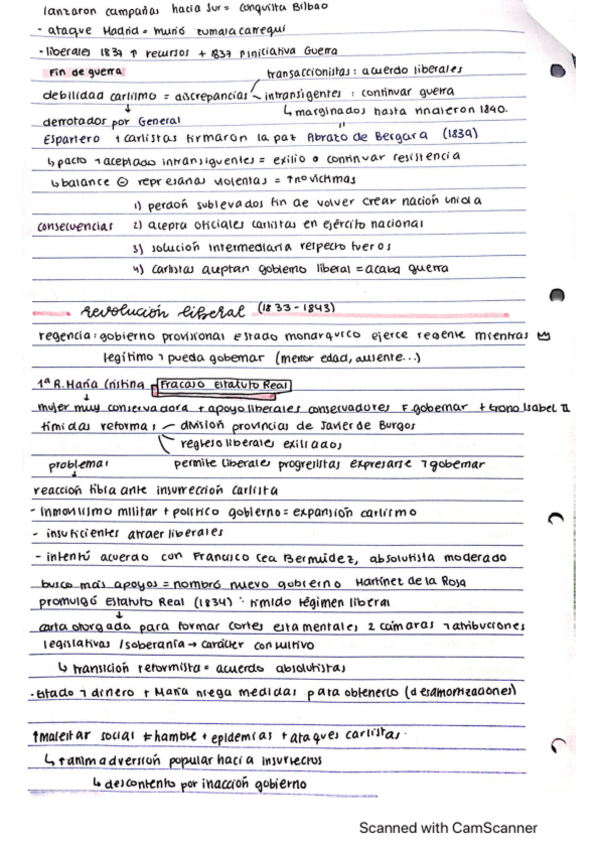 lanzaron campañas hacia Sur = conquista Bilbao
- ataque Madrid = murió zumalacarregui
- liberales 1837 ↑ recursos + 1837 iniciativa Guerra
Fin de guerra
transaccionistas: acuerdo liberales
debilidad carlismo = discrepancias
intransigentes: continuar guerra
↳ marginados hasta rindieron 1840.
derrotador por General
Espartero + carlistas firmaron la paz Abrazo de Bergara (1839)
↳ pacto ¬ aceptado intransiguentes = exilio o continuar resistencia
↳ balance ⊖ represarias violentas = ↑nº victimas
1) perdón sublevados fin de volver crear nación unida
consecuencias 2) acepta oficiales carlistas en ejército nacional
3) solución intermediaria respecto fueros
4) carlistas aceptan gobierno liberal = acaba guerra
revolución liberal (1833-1843)
regencia: gobierno provisional estado monarquico ejerce regente mientras
legítimo ¬ pueda gobernar (menor edad, ausente...)
1ª R. María Cristina Fracaso Estatuto Real
mujer muy conservadora + apoyo liberales conservadores F. gobernar + trono Isabel II
tímidas reformas - división provincias de Javier de Burgos
regreso liberales exiliados
problema:
permite liberales progresistas expresarse ¬ gobernar
reacción tibia ante insurrección carlista
- inmovilismo militar + político gobierno = expansión carlismo
- insuficientes atraer liberales
- intentó acuerdo con Francisco Cea Bermúdez, absolutista moderado
busco más apoyos = nombró nuevo gobierno Martínez de la Rosa
promulgó Estatuto Real (1834) : tímido régimen liberal
carta otorgada para formar cortes estamentales 2 cámaras ¬ atribuciones
legislativas / soberanía → carácter consultivo
↳ transición reformista = acuerdo absolutistas
- Estado ¬ dinero + María niega medidas para obtenerlo (desamortizaciones)
↑malestar social ≠ hambre + epidemias + ataques carlistas.
↳ ↑animadversión popular hacia insurrectos
↳ descontento por inacción gobierno
Scanned with CamScanner